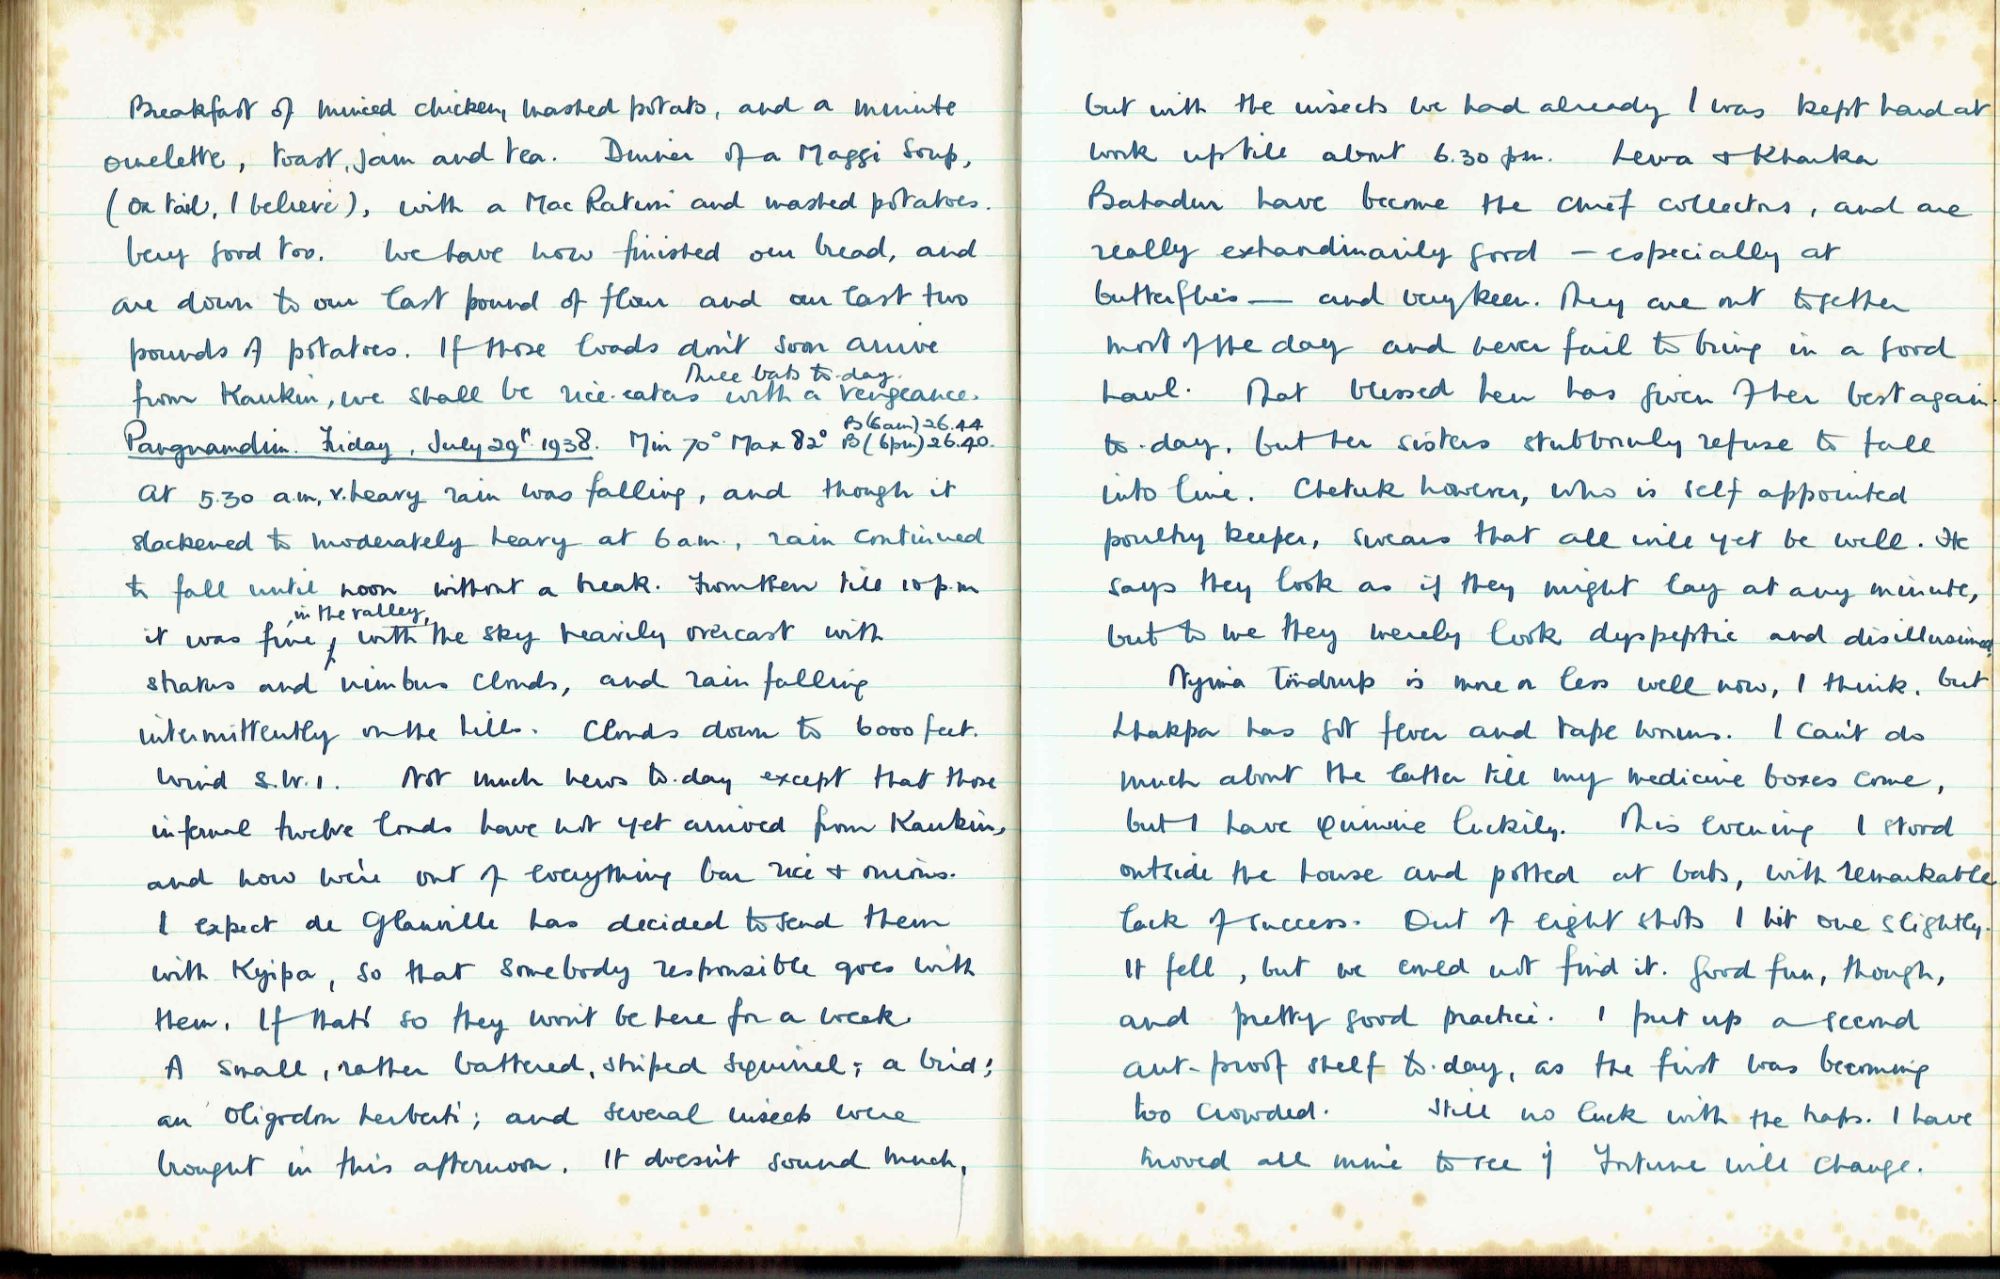 Breakfast of minced chicken, mashed potato, and a minute
omelette, toast, jam and tea. Dinner of a Maggi Soup,
(Ox tail, I believe), with a Mac Ration and mashed potatoes.
Very good too. We have now finished our bread, and
are down to our last pound of flour and our last two
pounds of potatoes. If those loads don't soon arrive
Three bats to-day.
from Kankin, we shall be rice-eaters with a vengeance.
B(6am) 26.44
Pangnamdim. Friday, July 29th 1938. Min 70° Max 82° B(6pm) 26.40.
At 5.30 a.m, v. heavy rain was falling, and though it
slackened to moderately heavy at 6 am., rain continued
to fall until noon without a break. From then till 10 p.m
, in the valley,
it was fine, with the sky heavily overcast with
stratus and nimbus clouds, and rain falling
intermittently on the hills. Clouds down to 6000 feet.
Wind S.W.1. Not much news to-day except that those
infernal twelve loads have not yet arrived from Kankin,
and now we're out of everything bar rice & onions.
I expect de Glanville has decided to send them
with Kyipa, so that somebody responsible goes with
them. If that's so they won't be here for a week.
A small, rather battered, striped squirrel; a bird;
an Oligodon herberti; and several insects were
brought in this afternoon. It doesn't sound much,
but with the insects we had already I was kept hard at
work up till about 6.30 pm. Lewa & Kharka
Bahadur have become the chief collectors, and are
really extraordinarily good — especially at
butterflies — and very keen. They are out together
most of the day and never fail to bring in a good
haul. That blessed hen has given of her best again
to-day, but her sisters stubbornly refuse to fall
into line. Chetuk however, who is self appointed
poultry keeper, swears that all will yet be well. He
says they look as if they might lay at any minute,
but to me they merely look dyspeptic and disillusioned.
Nyima Töndrup is more or less well now, I think, but
Lhakpa has got fever and tape worms. I can't do
much about the latter till my medicine boxes come,
but I have quinine luckily. This evening I stood
outside the house and potted at bats, with remarkable
lack of success. Out of eight shots I hit one slightly.
It fell, but we could not find it. Good fun, though,
and pretty good practice. I put up a second
ant-proof shelf to-day, as the first was becoming
too crowded. Still no luck with the traps. I have
moved all mine to see if fortune will change.